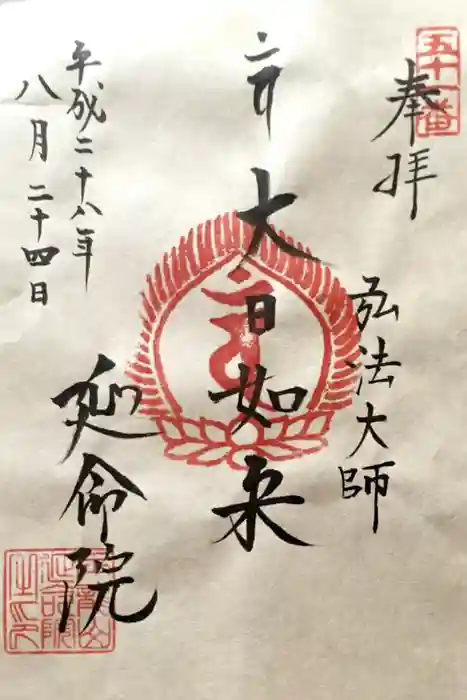 五十一番
奉拝
弘法大師
大日如来
延命院
平成二十八年
八月二十四日